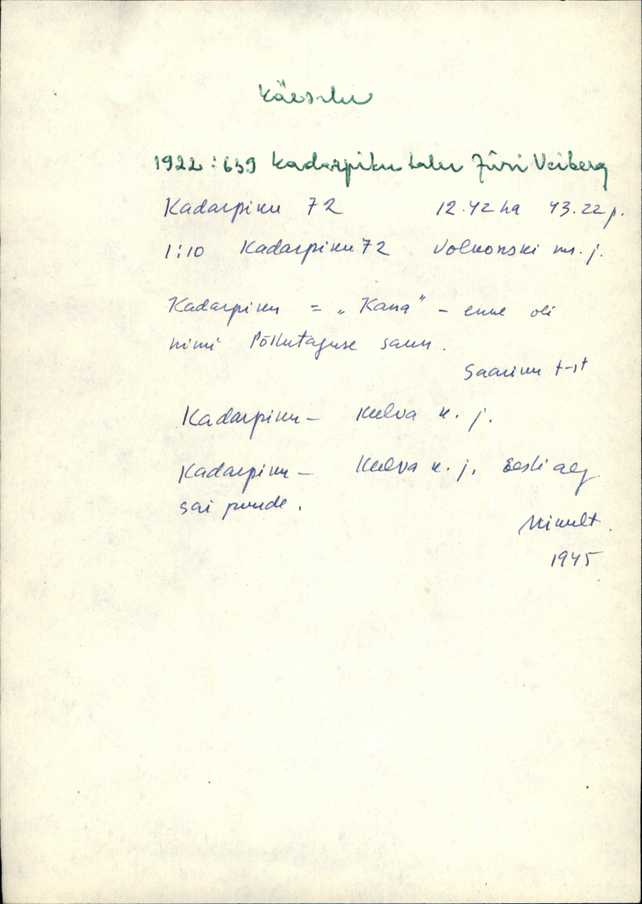 Käesalu
1922:639 Kadarpiku talu Jüri Veiberg
Kadarpiku 72 12.42 ha 43.22 p.
1:10 Kadarpiku 72 Volkonski m. j.
Kadarpiku = „Kana" – enne oli
nimi Põllutaguse saun.
Saariku t-st
Kadarpiku – Keelva k. j.
Kadarpiku – Keelva k. j. Eesti aeg
sai puude.
1945